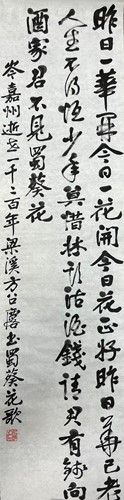 昨日一華開今日一花開今日花正好昨日華已老
人生不得恒少年莫惜床頭沽酒錢請君有錢向
酒家君不見蜀葵花
岑嘉州逝世一千二百年梁溪方召麐书蜀葵花歌